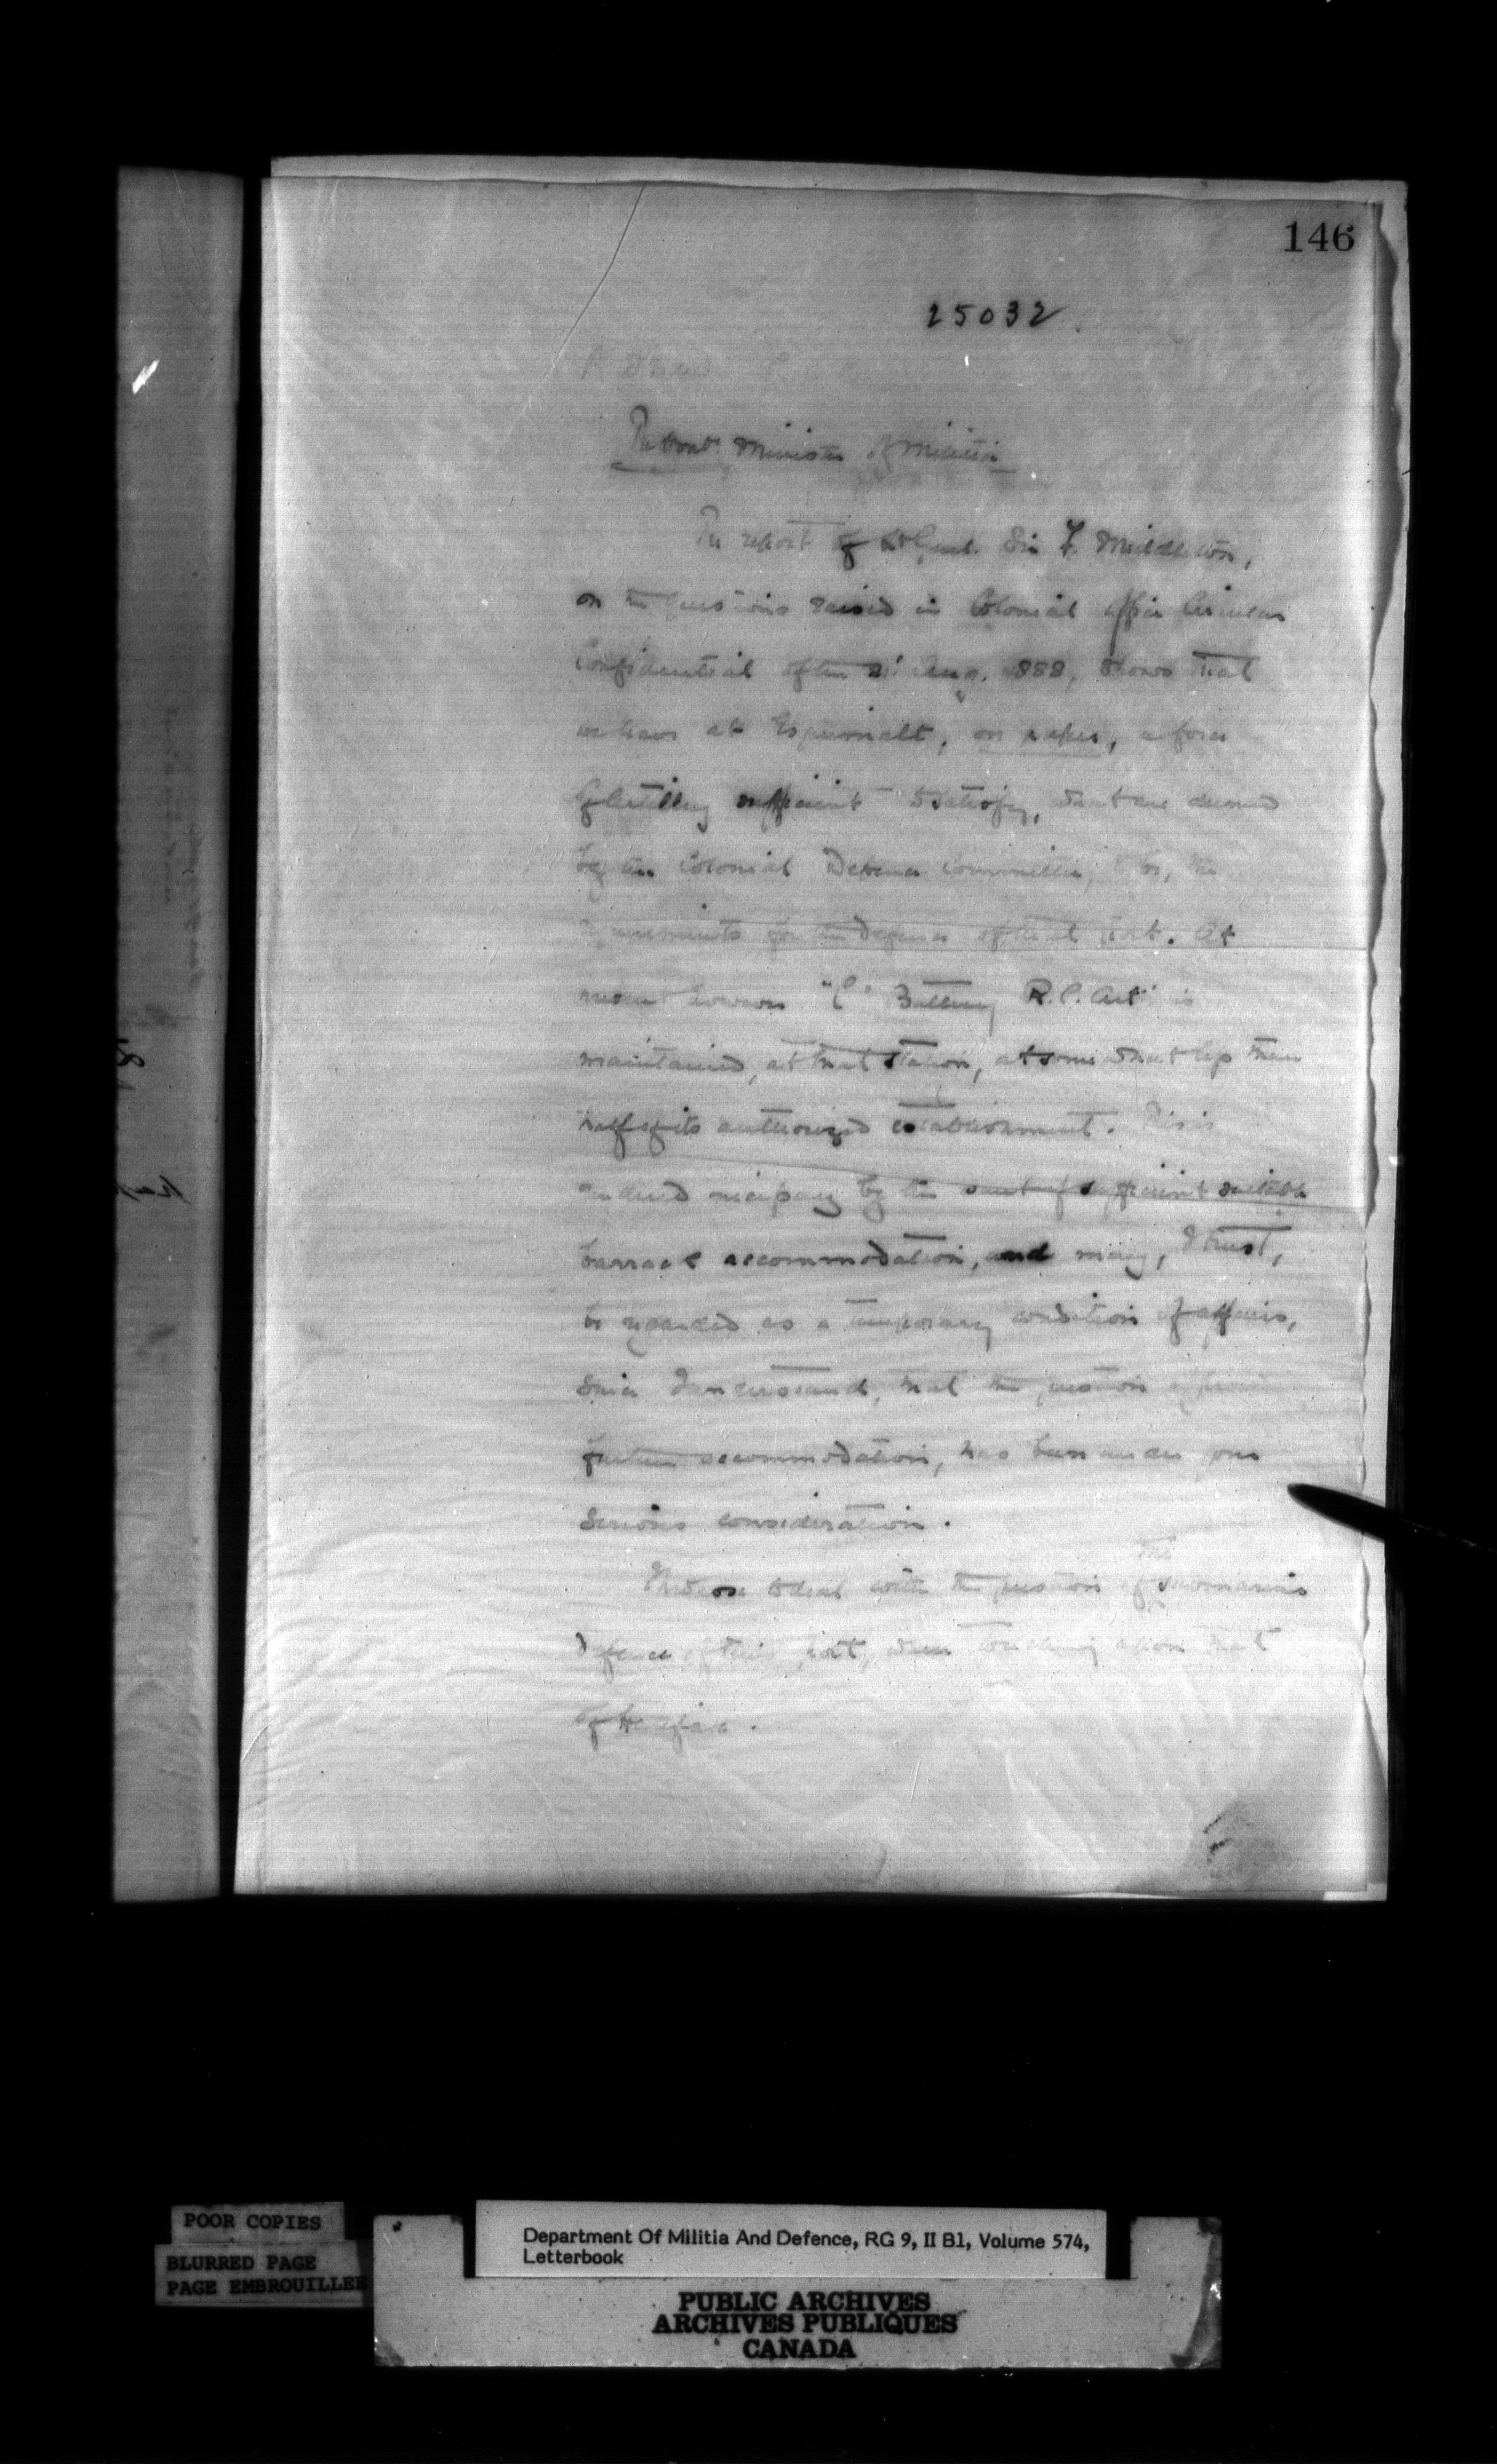 146
25032
The Honble Minister of Militia
The report of Lt Genl. Sir F. Middleton,
on the questions raised in Colonial Office Circular
Confidential of the Aug. 1888, shows that
we have at Esquimalt, on paper, a force
of Artillery sufficient to satisfy, what are deemed
by the Colonial Defence Committee, to be, the
requirements for the defence of that port. At
present however "C" Battery R.C. Arty is
maintained, at that station, at somewhat less than
half of its authorized establishment. This is
rendered necessary by the want of sufficient suitable
barrack accommodation, and may, I trust,
be regarded as a temporary condition of affairs,
since I understand, that the question of
further accommodation, has been under your
serious consideration.
I propose to deal with the question of the submarine
defence of this port, when touching upon that
of Halifax.
POOR COPIES
BLURRED PAGE
PAGE EMBROUILLEE
Department Of Militia And Defence, RG 9, II B1, Volume 574,
Letterbook
PUBLIC ARCHIVES
ARCHIVES PUBLIQUES
CANADA